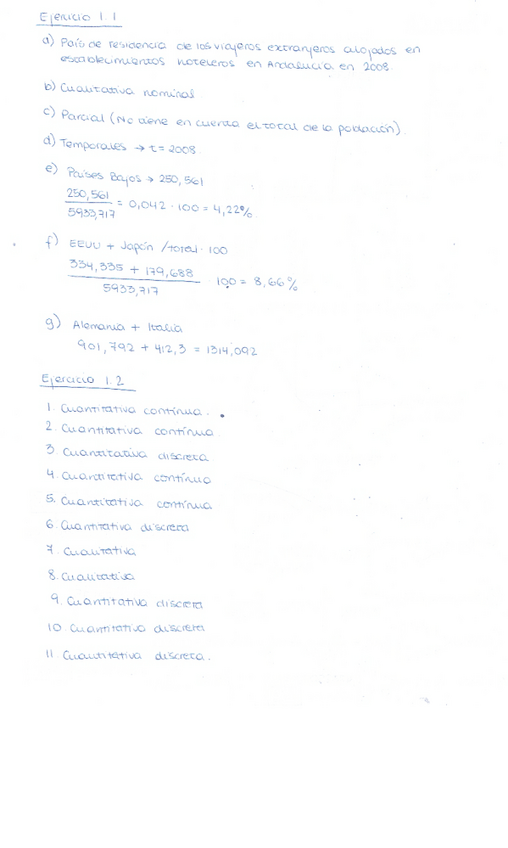 Ejercicio 1.1
a) País de residencia de los viajeros extranjeros alojados en
establecimientos hoteleros en Andalucía en 2008
b) Cualitativa nominal
c) Parcial (No tiene en cuenta el total de la población)
d) Temporales → t = 2008
e) Países Bajos → 250,561
250,561
= 0,042 · 100 = 4,22%
5933,717
f) EEUU + Japón /total · 100
334,335 + 179,688
100 = 8,66%
5933,717
g) Alemania + Italia
901,792 + 412,3 = 1314,092
Ejercicio 1.2
1. Cuantitativa contínua.
2. Cuantitativa contínua
3. Cuantitativa discreta
4. Cuantitativa contínua
5. Cuantitativa contínua
6. Cuantitativa discreta
7. Cualitativa
8. Cualitativa
9. Cuantitativa discreta
10. Cuantitativa discreta
11. Cuantitativa discreta.